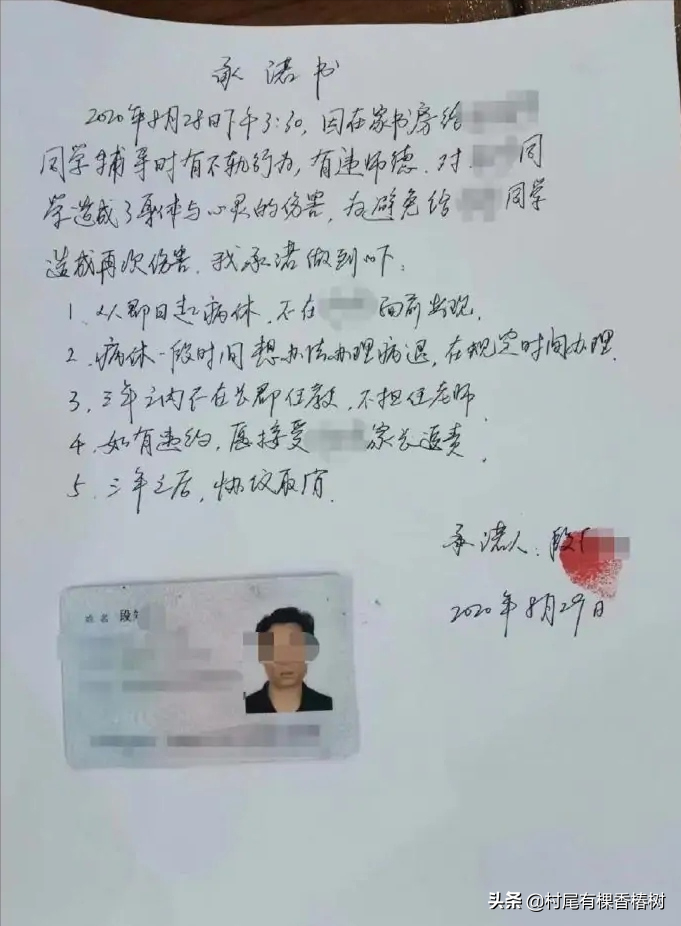 承诺书
2020年8月28日下午3:30,因在家书房给
同学辅导时有不轨行为,有违师德.对 同
学造成了身体与心灵的伤害,为避免给 同学
造成再次伤害.我承诺做到以下:
1、从即日起病休,不在 面前出现.
2、病休一段时间想办法办理病退,在规定时间办理.
3、三年之内不在长郡任教,不担任老师.
4、如有违约,愿接受 家长追责.
5、三年之后,协议取消.
承诺人:段
2020年8月29日
姓名 段
头条 @村尾有棵香椿树